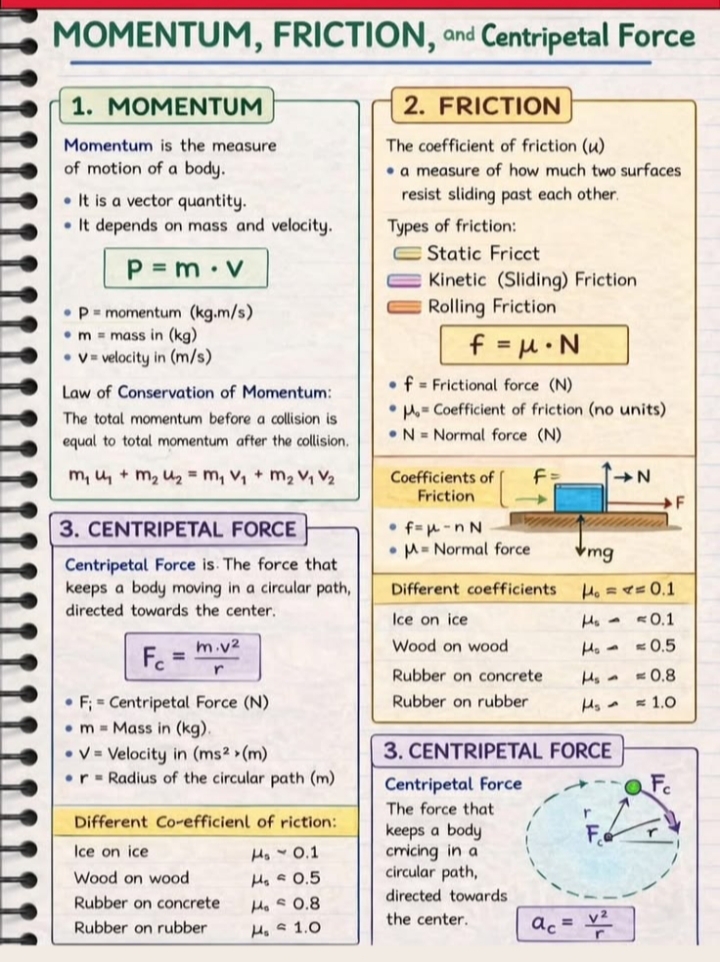 MOMENTUM, FRICTION, and Centripetal Force
1. MOMENTUM
Momentum is the measure
of motion of a body.
• It is a vector quantity.
• It depends on mass and velocity.
P = m · v
• P = momentum (kg.m/s)
• m = mass in (kg)
• v = velocity in (m/s)
Law of Conservation of Momentum:
The total momentum before a collision is
equal to total momentum after the collision.
m₁ u₁ + m₂ u₂ = m₁ v₁ + m₂ v₁ v₂
3. CENTRIPETAL FORCE
Centripetal Force is. The force that
keeps a body moving in a circular path,
directed towards the center.
Fc = m.v² / r
• Fᵢ = Centripetal Force (N)
• m = Mass in (kg).
• V = Velocity in (ms² >(m)
• r = Radius of the circular path (m)
Different Co-efficienl of riction:
Ice on ice μs ~ 0.1
Wood on wood μs ≈ 0.5
Rubber on concrete μs ≈ 0.8
Rubber on rubber μs ≈ 1.0
2. FRICTION
The coefficient of friction (u)
• a measure of how much two surfaces
resist sliding past each other.
Types of friction:
Static Fricct
Kinetic (Sliding) Friction
Rolling Friction
f = μ · N
• f = Frictional force (N)
• μₒ= Coefficient of friction (no units)
• N = Normal force (N)
Coefficients of
Friction
f =
→ N
F
mg
• f= μ - n N
• μ = Normal force
Different coefficients μₒ = = 0.1
Ice on ice μs ≈ 0.1
Wood on wood μs ≈ 0.5
Rubber on concrete μs ≈ 0.8
Rubber on rubber μs ≈ 1.0
3. CENTRIPETAL FORCE
Centripetal Force
The force that
keeps a body
cmicing in a
circular path,
directed towards
the center.
Fc
r
Fc
r
ac = v² / r